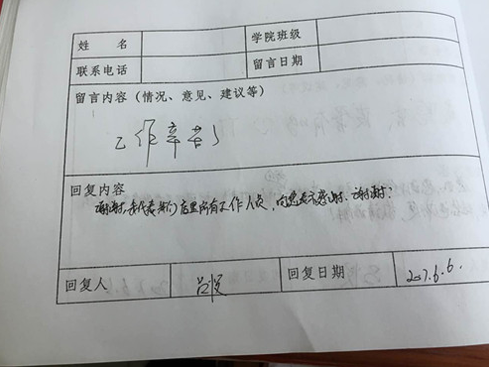 姓 名 学院班级
联系电话 留言日期
留言内容（情况、意见、建议等）
工作辛苦
回复内容
谢谢，我代表 所有工作人员，向您表示感谢，谢谢！
回复人 回复日期 2017.6.6.